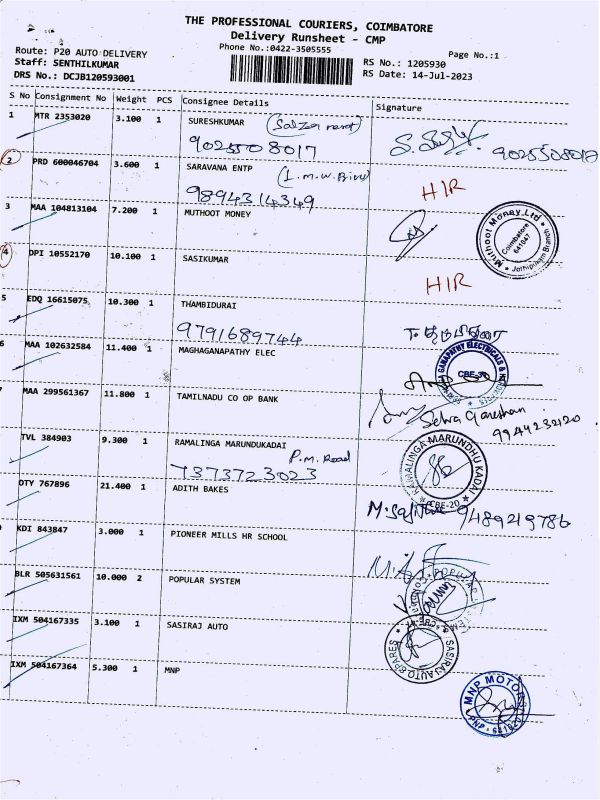 THE PROFESSIONAL COURIERS, COIMBATORE
Delivery Runsheet - CMP
Phone No.:0422-3505555
Page No.:1
Route: P20 AUTO DELIVERY
Staff: SENTHILKUMAR
DRS No.: DCJB120593001
RS No.: 1205930
RS Date: 14-Jul-2023
S No Consignment No Weight PCS Consignee Details Signature
1 MTR 2353020 3.100 1 SURESHKUMAR
9025508017 9025508017
2 PRD 600046704 3.600 1 SARAVANA ENTP
9894314349 HIR
3 MAA 104813104 7.200 1 MUTHOOT MONEY
Muthoot Money Ltd Coimbatore 641047 Jothipuram Branch
4 DPI 10552170 10.100 1 SASIKUMAR
HIR
5 EDQ 16615075 10.300 1 THAMBIDURAI
9791689744
6 MAA 102632584 11.400 1 MAGHAGANAPATHY ELEC
GANAPATHY ELECTRICALS & CBE-20
MAA 299561367 11.800 1 TAMILNADU CO OP BANK
Selva Ganeshan
9944232120
TVL 384903 9.300 1 RAMALINGA MARUNDUKADAI
P.M. Road
7373723023
RAMALINGA MARUNDHU KADAI CBE-20
DTY 767896 21.400 1 ADITH BAKES
9489219786
KDI 843847 3.000 1 PIONEER MILLS HR SCHOOL
BLR 505631561 10.000 2 POPULAR SYSTEM
IXM 504167335 3.100 1 SASIRAJ AUTO
SASIRAJ AUTO SPARES
IXM 504167364 5.300 1 MNP
MNP MOTORS PNP - 641020